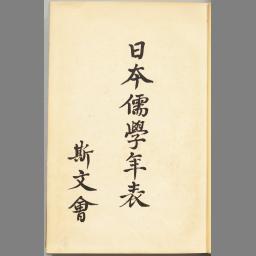 日本儒學年表
斯文會